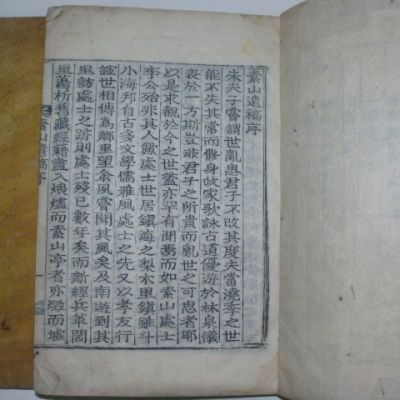 素山遺稿序
朱夫子嘗謂世亂患君子不改其度夫當澆季之世
能不失其當而修身故家歌詠古道優遊於林泉儀
表於一方斯豈非君子之所貴而亂世之可患者耶
以是求觀於今之世盖亦罕有聞焉而如素山處士
李公殆非其人歟處士世居鎭海之梨木里鎭雖斗
小海邦自古多文學儒雅風處士之先又以孝友行
誼世相傳爲鄕里望余夙嘗聞其風矣及南遊到其
里訪處士之跡則處士歿已數年矣而新經兵革閭
里蕩析舊藏經籍盡入煨燼而素山亭者亦燬而墟
素山遺稿序